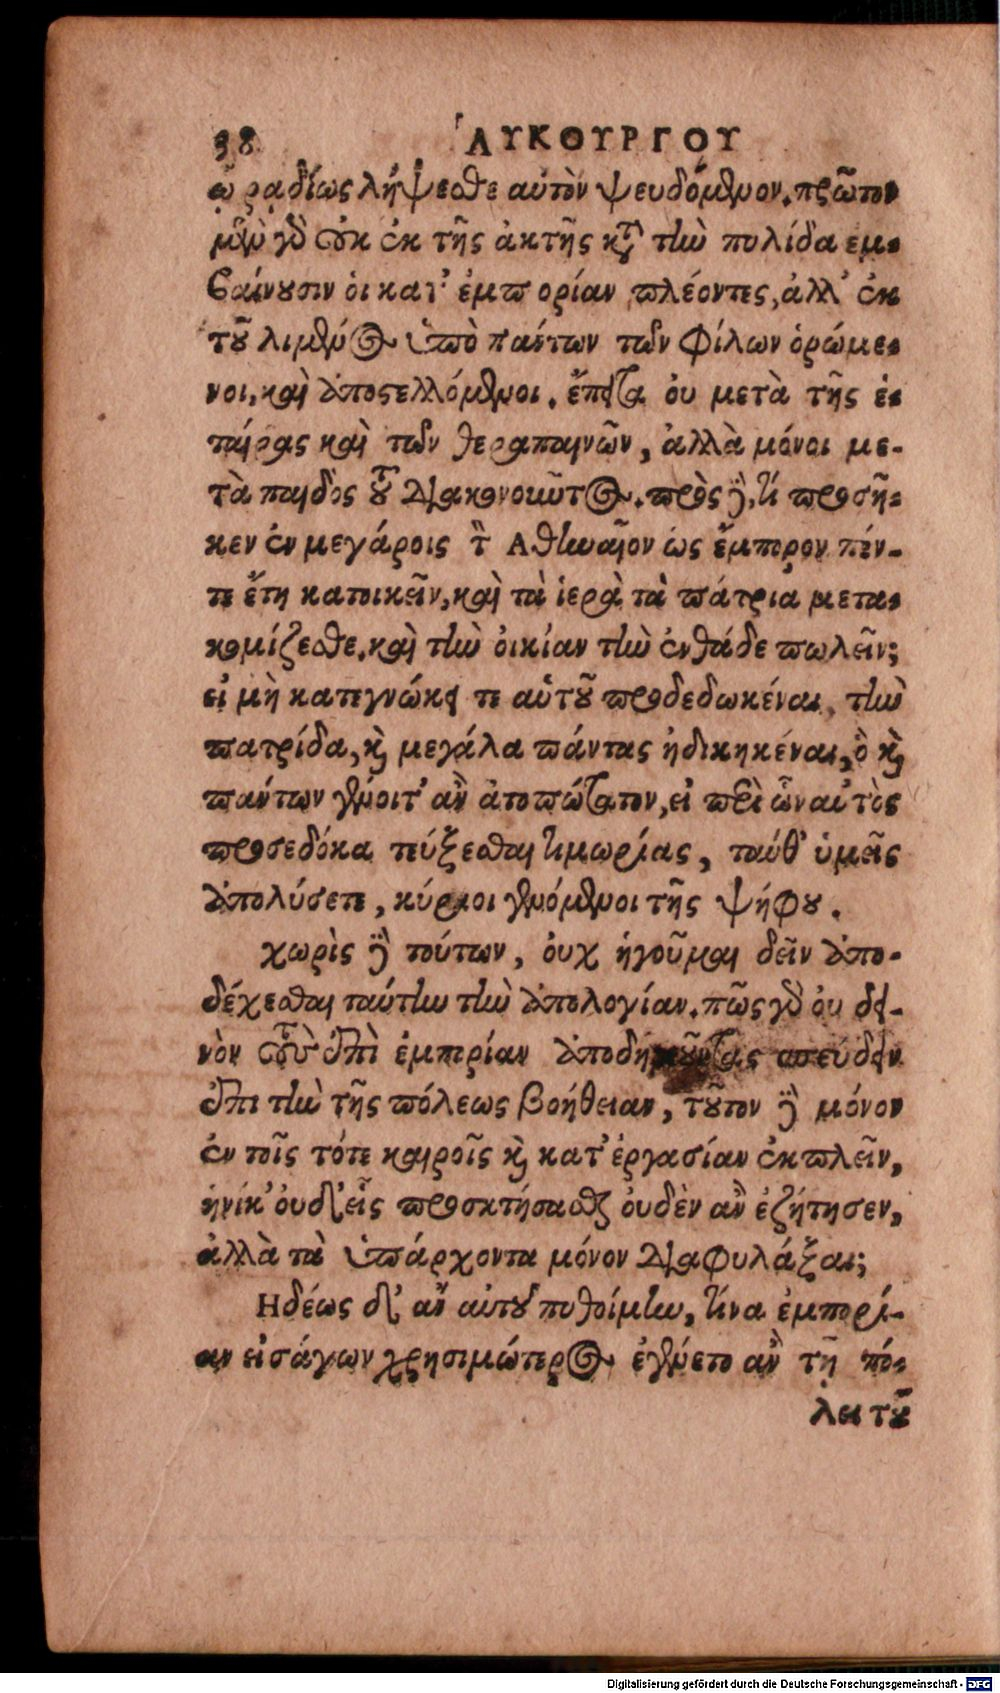 38 ΛΥΚΟΥΡΓΟΥ
ῥᾳδίως λήψεσθε αὐτὸν ψευδόμενον. πρῶτον
μὲν γὰρ οὐκ ἐκ τῆς ἀκτῆς κατὰ τὴν πυλίδα εμ-
βαίνουσιν ὁι κατ' ἐμπορίαν πλέοντες, ἀλλ' ἐκ
τοῦ λιμένος ὑπὸ πάντων τῶν φίλων ὁρώμε-
νοι, καὶ ἀποστελλόμενοι. ἔπειτα ου μετὰ τῆς ἑ-
ταίρας καὶ τῶν θεραπαινῶν, ἀλλὰ μόνοι με-
τὰ παιδὸς τοῦ διακονοῦντος. πρὸς δὲ, τί προσῆ-
κεν ἐν μεγάροις τὸν Αθηναῖον ὡς ἔμπορον πέν-
τε ἔτη κατοικεῖν, καὶ τὰ ἱερὰ τὰ πάτρια μετα-
κομίζεσθαι, καὶ τὴν ὀικίαν τὴν ἐνθάδε πωλεῖν;
εἰ μὴ κατεγνώκει τε αὑτοῦ προδεδωκέναι, τὴν
πατρίδα, καὶ μεγάλα πάντας ἠδικηκέναι, ὃ καὶ
πάντων γένοιτ' ἂν ἀτοπώτατον, εἰ περὶ ὧν αὐτὸς
προσεδόκα τεύξεσθαι τιμωρίας, ταύθ' ὑμεῖς
ἀπολύσετε, κύριοι γενόμενοι τῆς ψήφου.
χωρὶς δὲ τούτων, ὀυχ ἡγοῦμαι δεῖν ἀπο-
δέχεσθαι ταύτην τὴν ἀπολογίαν. πῶς γὰρ ὀυ δει-
νὸν τοὺς ἐπὶ ἐμπορίαν ἀποδημοῦντας σπεύδειν
ἐπι τὴν τῆς πόλεως βοήθειαν, τοῦτον δὲ μόνον
ἐν τοῖς τότε καιροῖς καὶ κατ' ἐργασίαν ἐκπλεῖν,
ἡνίκ' ὀυδ' εἷς προσκτήσασθαι ὀυδὲν ἂν ἐζήτησεν,
ἀλλὰ τὰ ὑπάρχοντα μόνον διαφυλάξαι;
Ηδέως δ' ἂν αὐτοῦ πυθοίμην, τίνα ἐμπορί-
αν εἰσάγων χρησιμώτερος ἐγένετο ἂν τῇ πό-
λει τοῦ
Digitalisierung gefördert durch die Deutsche Forschungsgemeinschaft - DFG